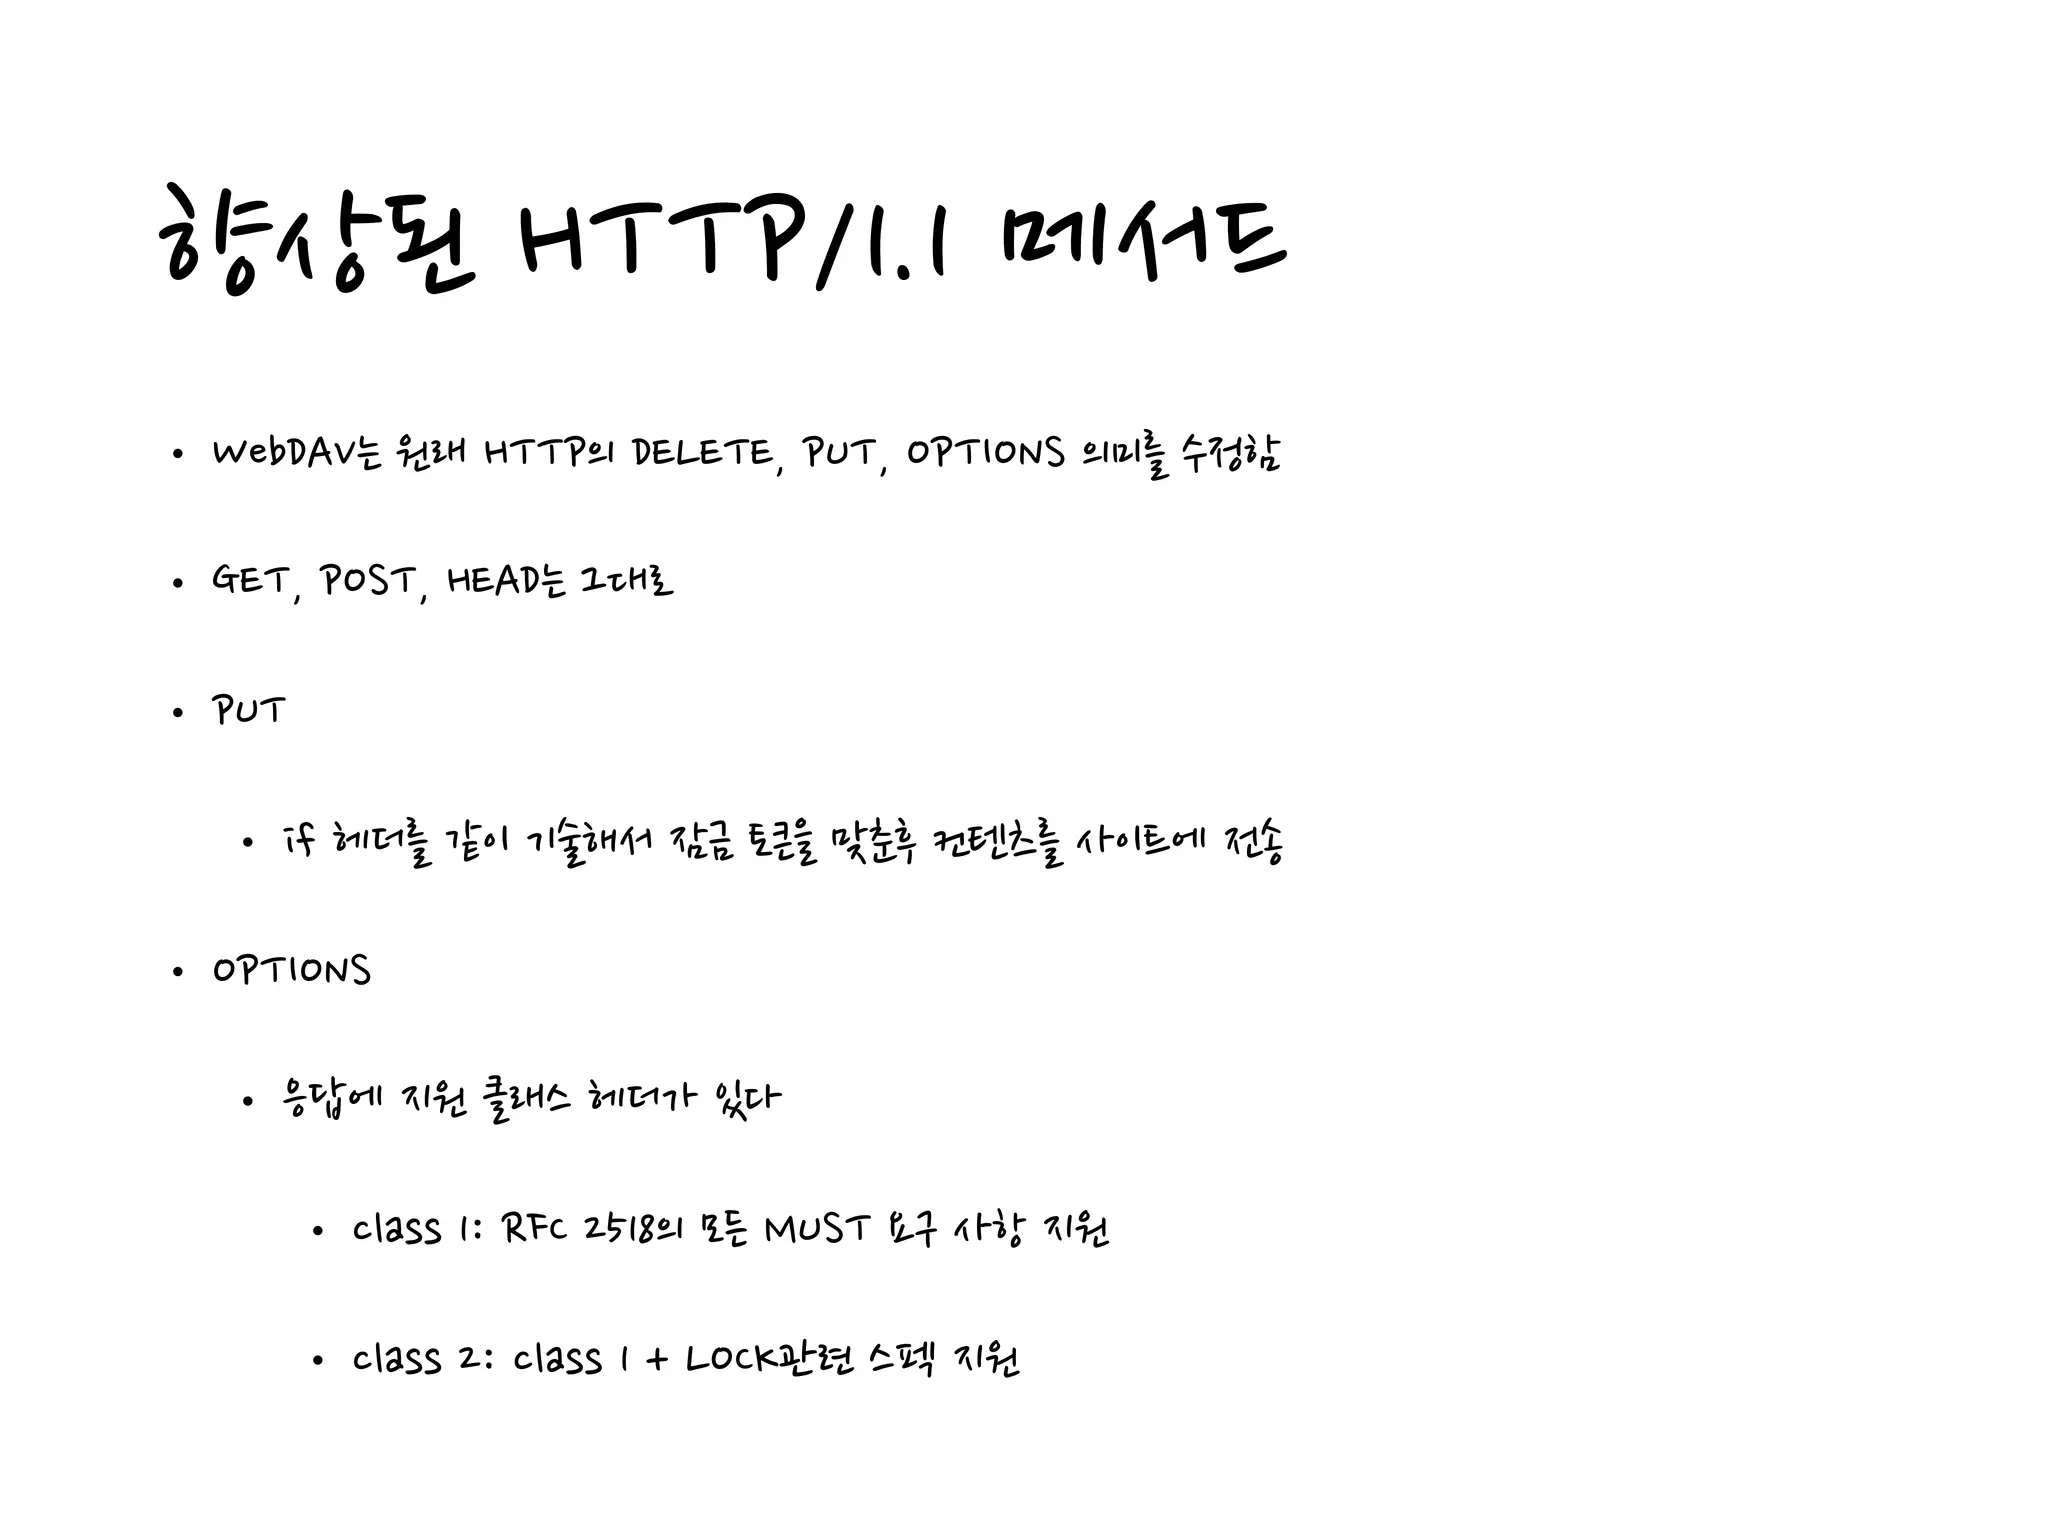 향상된 HTTP/1.1 메서드
• WebDAV는 원래 HTTP의 DELETE, PUT, OPTIONS 의미를 수정함
• GET, POST, HEAD는 그대로
• PUT
• if 헤더를 같이 기술해서 잠금 토큰을 맞춘후 컨텐츠를 사이트에 전송
• OPTIONS
• 응답에 지원 클래스 헤더가 있다
• class 1: RFC 2518의 모든 MUST 요구 사항 지원
• class 2: class 1 + LOCK관련 스펙 지원